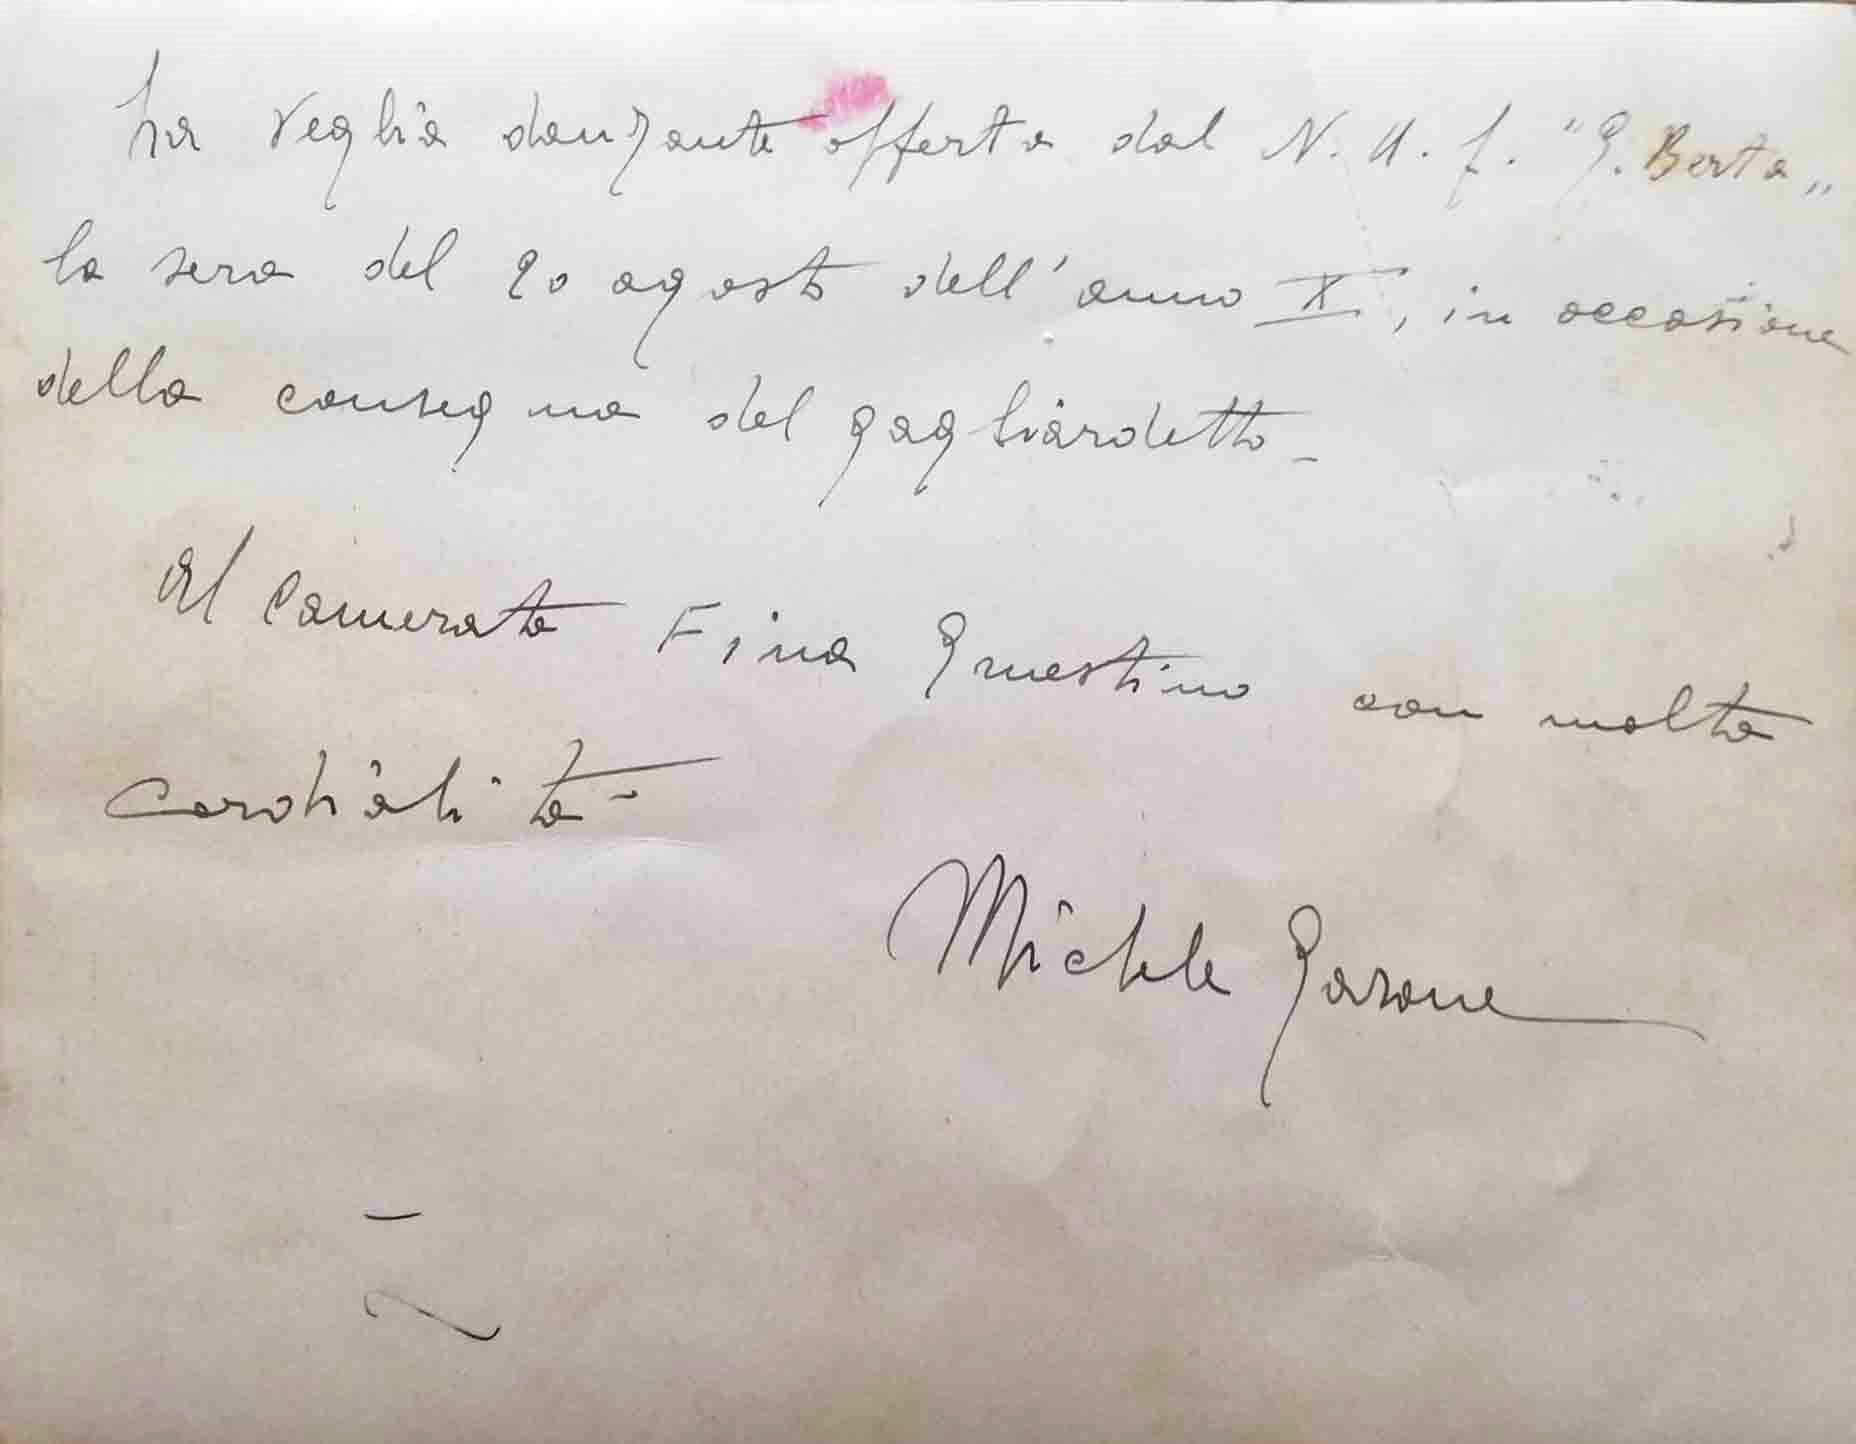 La veglia danzante offerta dal N. U. f. "G. Berta„
la sera del 20 agosto dell'anno X, in occasione
della consegna del gagliardetto -
Al Camerata Fina Ernestino con molta
cordialità -
Michele Garone